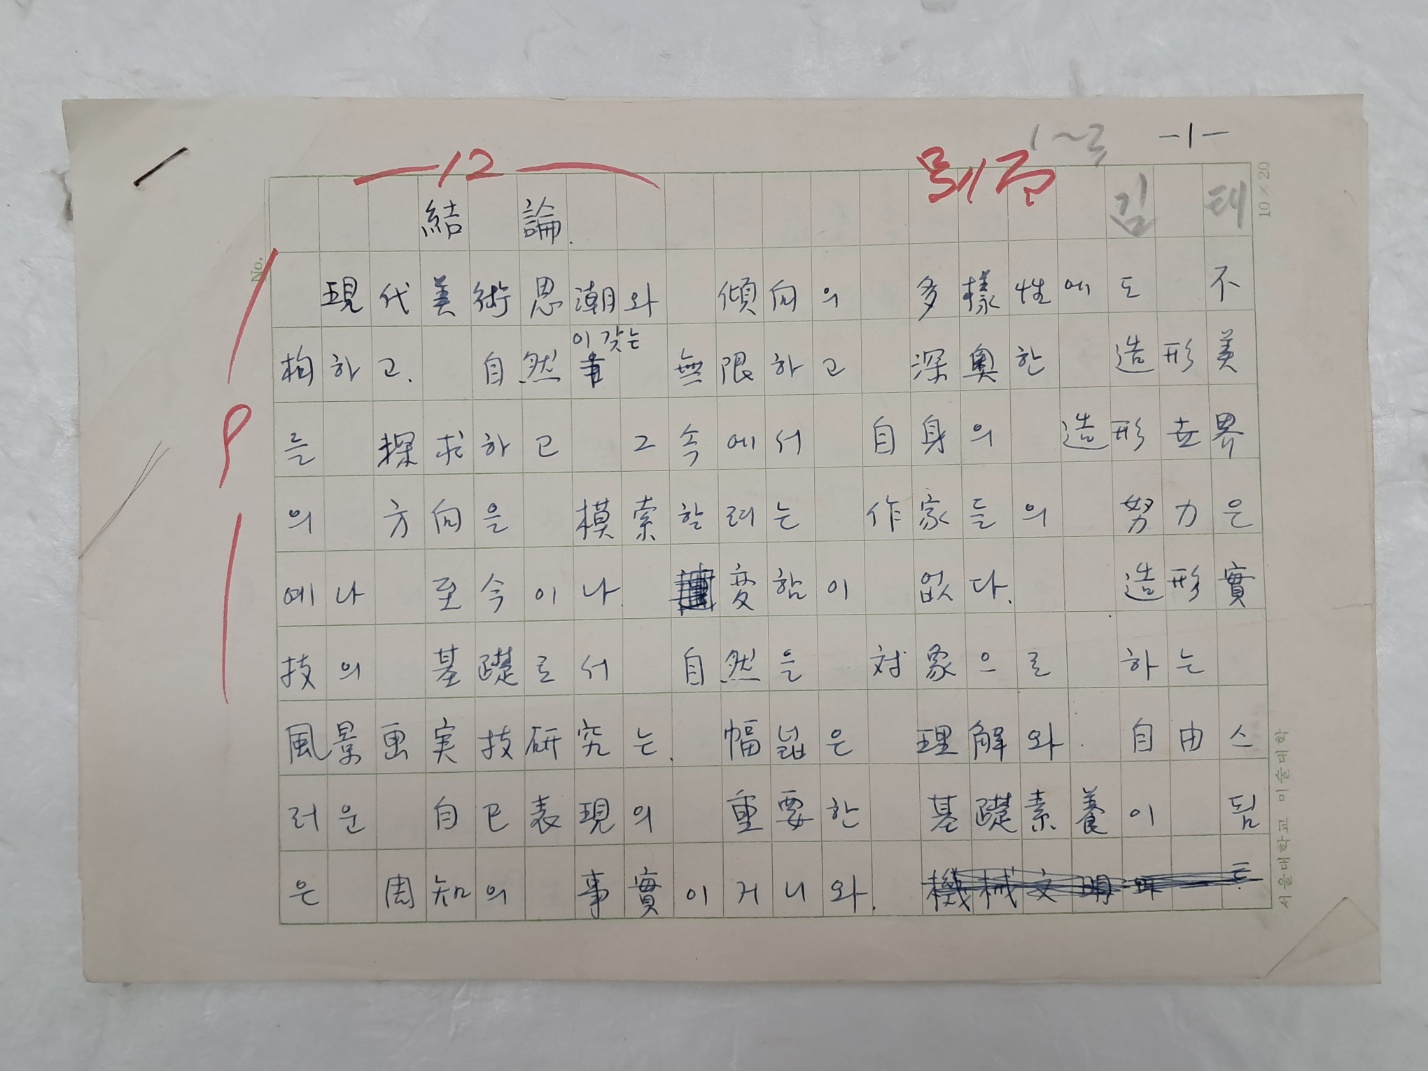 1~3 -1-
12 別頁
10×20
김 태
結 論.
No.
現代美術思潮와 傾向의 多樣性에도 不
拘하고. 自然이 갖는 無限하고 深奧한 造形美
를 探求하고 그 속에서 自身의 造形世界
의 方向을 模索할려는 作家들의 努力은
예나 至今이나 変함이 없다. 造形實
技의 基礎로서 自然을 対象으로 하는
風景画実技研究는. 幅넓은 理解와. 自由스
러운 自己表現의 重要한 基礎素養이 됨
은 周知의 事實이거니와. 機械文明
9
서울대학교 미술대학